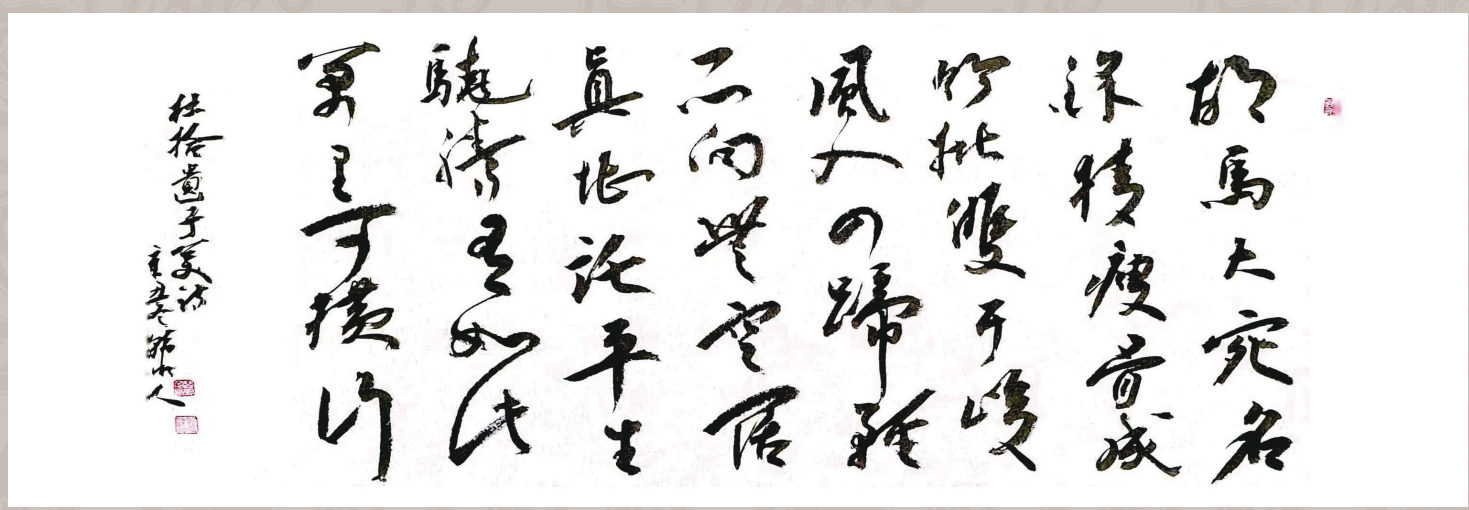 胡馬大宛名
鋒稜瘦骨成
竹批雙耳峻
風入四蹄輕
所向無空闊
真堪託平生
驍騰有如此
萬里可橫行
杜拾遺子美詩
辛丑冬 人